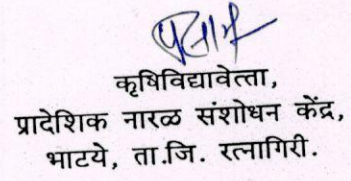 कृषिविद्यावेत्ता,
प्रादेशिक नारळ संशोधन केंद्र,
भाटये, ता.जि. रत्नागिरी.